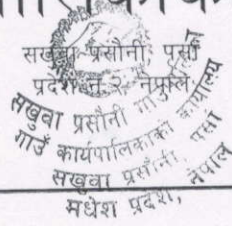 सखुवा प्रसौनी पर्सा
प्रदेश नं. २ नेपाल
सखुवा प्रसौनी
गाउँ कार्यपालिकाको कार्यालय
सखुवा प्रसौनी, पर्सा
मधेश प्रदेश, नेपाल